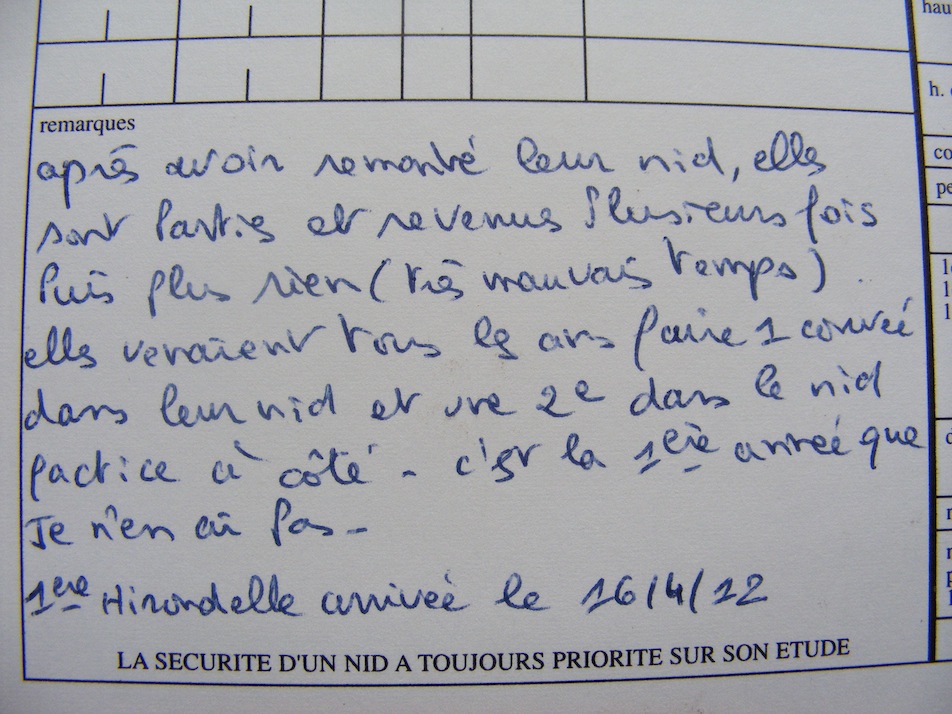 hau
h.
co
pe
remarques
après avoir remonté leur nid, elles
sont Parties et revenus Plusieurs fois
Puis plus rien (très mauvais temps)
elles venaient tous les ans faire 1 couvée
dans leur nid et une 2e dans le nid
factice à côté - c'est la 1ère année que
Je n'en ai pas -
1ere Hirondelle arrivée le 16/4/12
LA SECURITE D'UN NID A TOUJOURS PRIORITE SUR SON ETUDE